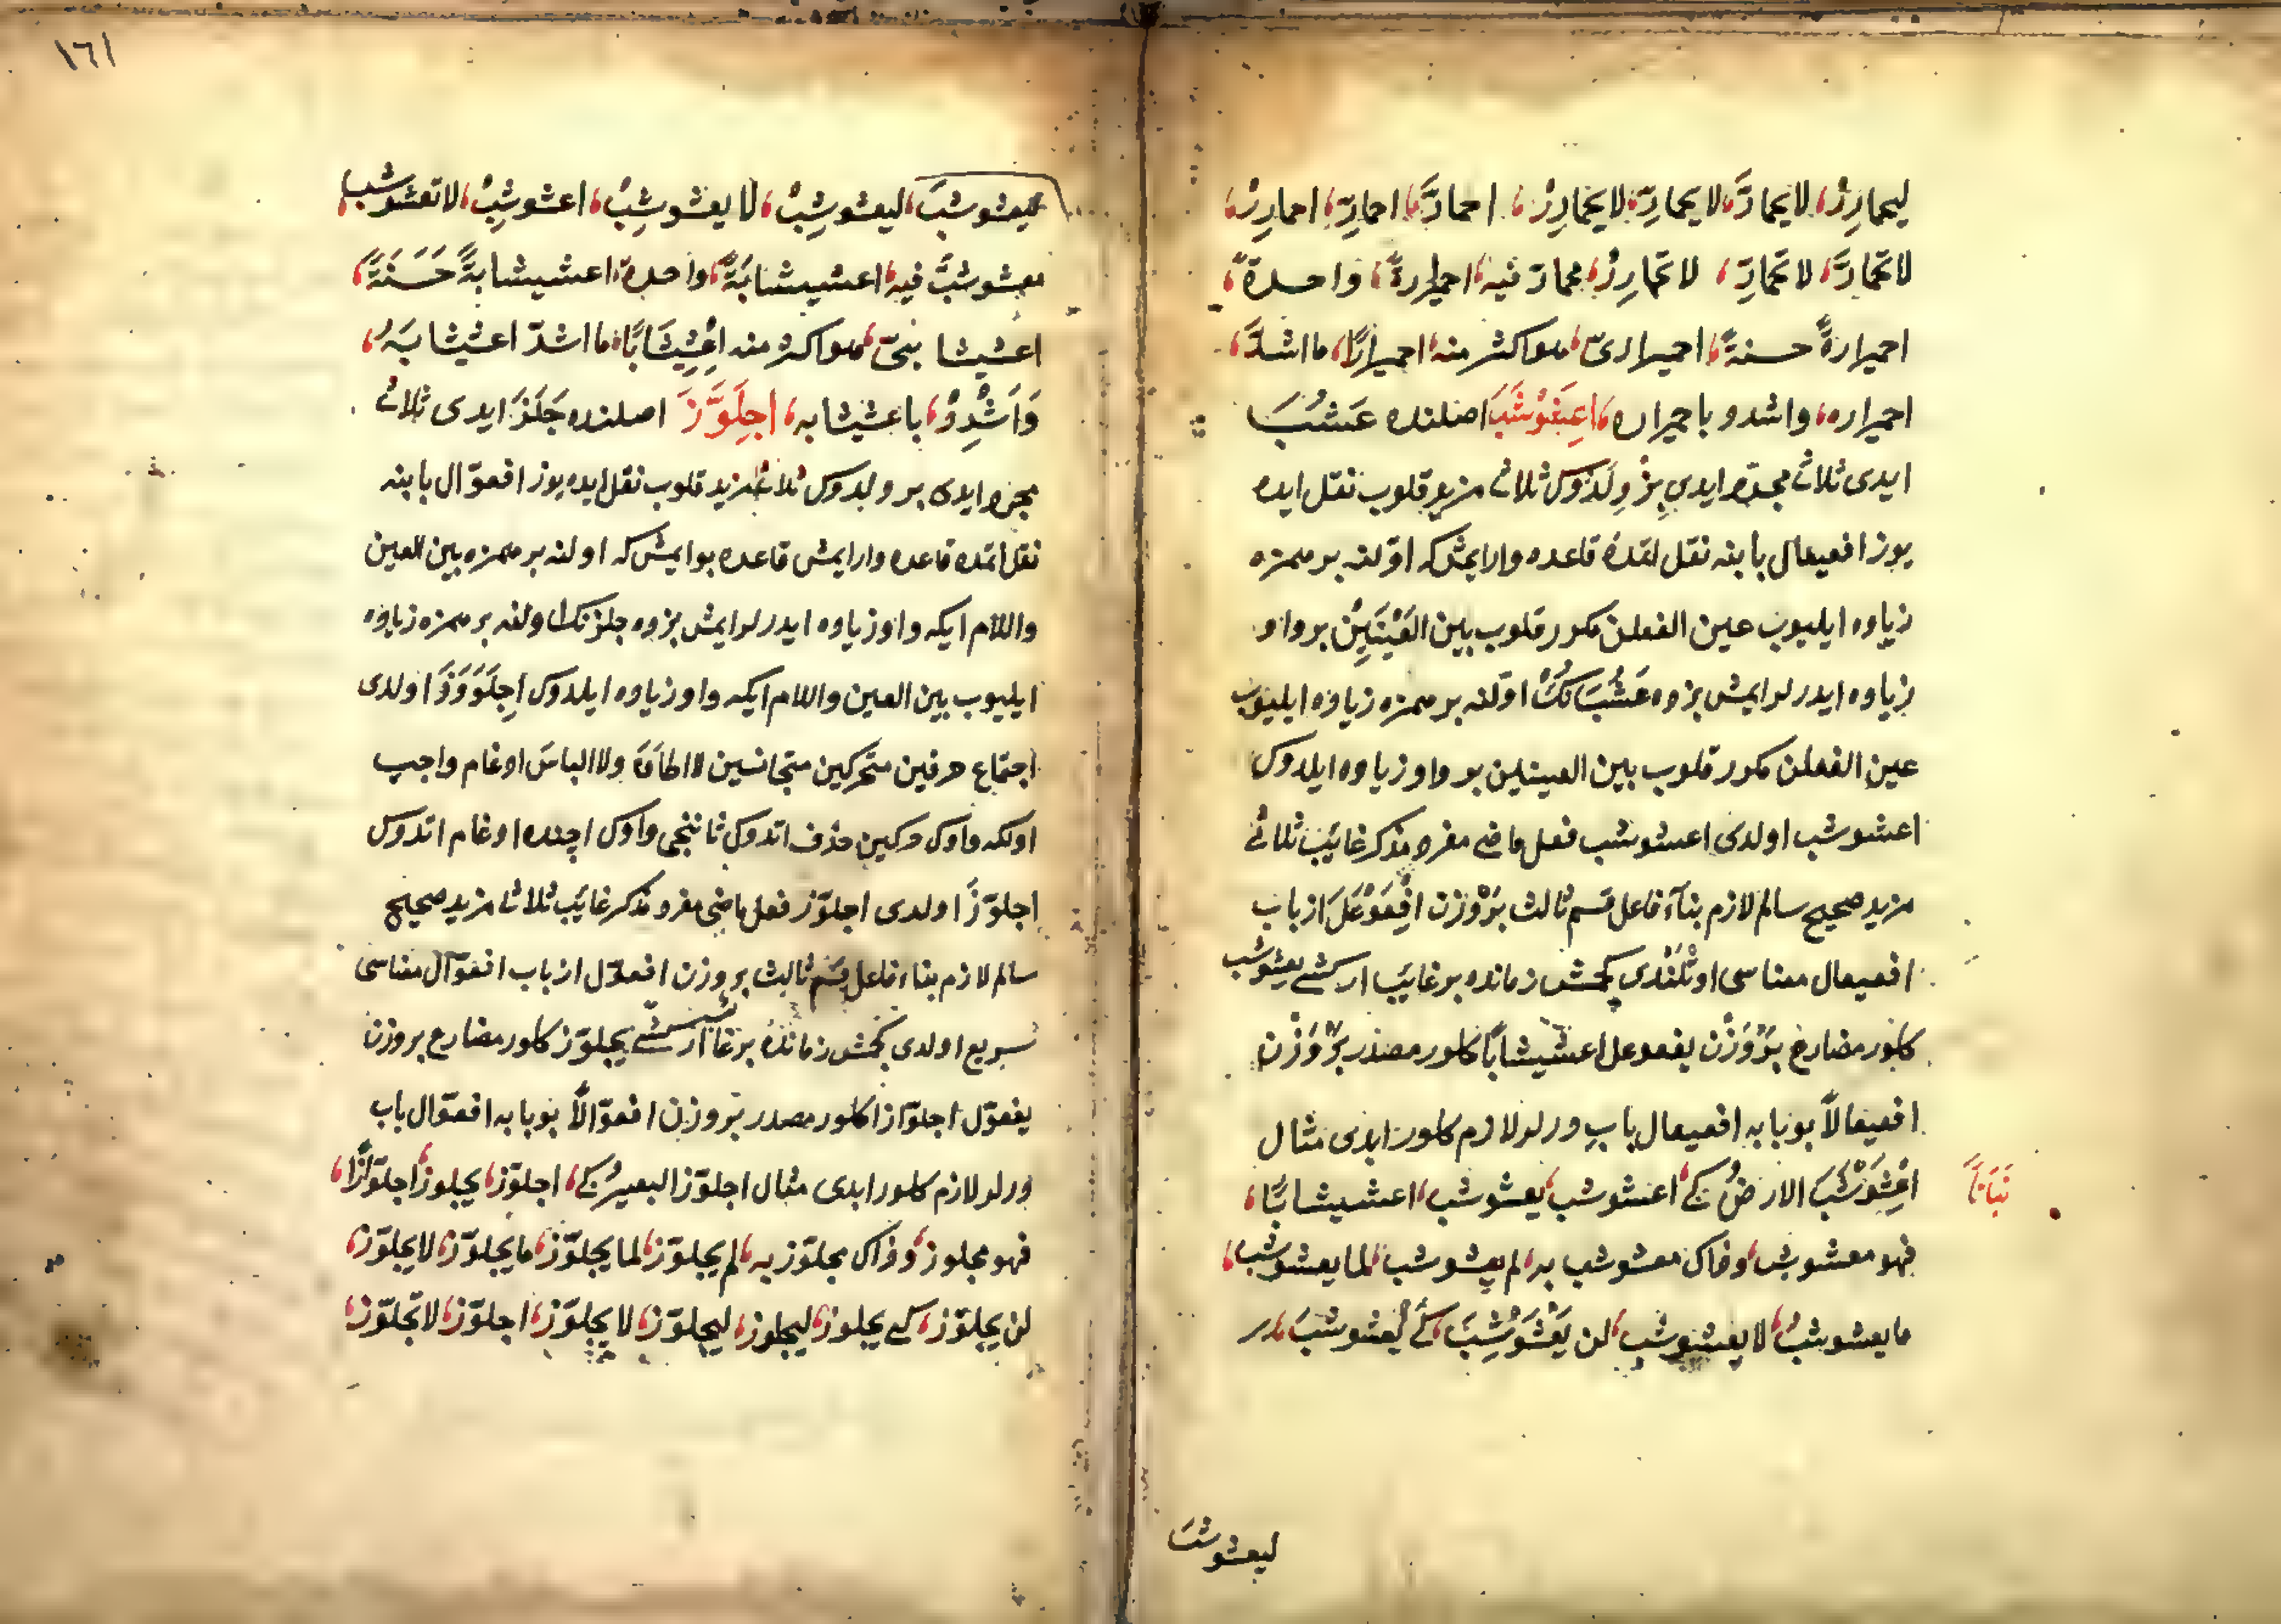 ليحمارِرْ، لا يحمارَّ، لا يحمارِّ، لا يحمارِرْ، احمارَّ، احمارِّ، احمارِرْ،
لا تحمارَّ، لا تحمارِّ، لا تحمارِرْ، محمارّ فيه، احميرارةً، واحدةً،
احميرارةً حسنةً، احميراريّ، هو اكثر منه احميرارًا، ما اشدَّ،
احميراره، واشدد باحميراره، اعشَوْشَبَ اصلنده عَشُبَ
ايدى ثلاثى مجرد ايدى بز ولدوكى ثلاثى مزيد قلوب نقل ايده
يوز افعيعال بابنه نقل اتمده قاعده وار ايمش كه اولنه بر همزه
زياده ايليوب عين الفعلن مكرر قلوب بين العَيْنَيْنِ بر واو
زياده ايدرلر ايمش بزده عَشُبَ نكْ اولنه بر همزه زياده ايليوب
عين الفعلن مكرر قلوب بين العينين بر واو زياده ايلدوك
اعشوشب اولدى اعشوشب فعل ماضى مفرد مذكر غايب ثلاثى
مزيد صحيح سالم لازم بناء فاعل قسم ثالث بر وزن افْعَوْعَلَ از باب
افعيعال معناسى اوتلندى كچمش زمانده بر غايب ار كشى يعشوشب
كلور مضارع بر وزن يفعوعل اعشيشابًا كلور مصدر بر وزن
افعيعالًا بو بابه افعيعال باب ديرلر لازم كلور ايدى مثال
اعْشَوْشَبَ الارضُ كى، اعشوشب، يعشوشب، اعشيشابًا،
نَبَاتًا
فهو معشوشب، وذاك معشوشب به، لم يعشوشب، لما يعشوشب،
ما يعشوشبُ، لا يعشوشب، لن يَعْشَوْشِبَ، كى يعشوشبَ،
ليعشوشب
١٦١
ليعشوشبَ، ليعشوشِبْ، لا يعشوشِبْ، اعشوشِبْ، لا تعشوشب،
معشوشبٌ فيه، اعشيشابَةً، واحدة، اعشيشابةً حَسَنَةً،
اعشيشابىّ، هو اكثر منه اعْشِيشَابًا، ما اشدّ اعشيشابَهُ،
وَاَشْدِدْ، باعشيشابه، اِجلَوَّزَ اصلنده جَلَزَ ايدى ثلاثى
مجرد ايدى بز ولدوكى ثلاثى مزيد قلوب نقل ايده يوز افعوّال بابنه
نقل اتمده قاعده وار ايمش قاعده بو ايمش كه اولنه بر همزه بين العين
واللام ايكه واو زياده ايدرلر ايمش بزده جلزنك اولنه بر همزه زياده
ايليوب بين العين واللام ايكه واو زياده ايلدوك اِجلَوْوَزَ اولدى
اجتماع حرفين متحركين متجانسين لا الحاقَ ولا الباسَ ادغام واجب
اولكه واوك حركين حذف اتدوك ثاننجى واوك اچنده ادغام اتدوك
اجلوّزَ اولدى اجلوّز فعل ماضى مفرد مذكر غايب ثلاثى مزيد صحيح
سالم لازم بناء فاعل قسم ثالث بر وزن افعوّل از باب افعوّال معناسى
سريع اولدى كچمش زمانده بر غائب ار كشى يجلوّز كلور مضارع بر وزن
يفعوّل اجلوّازا كلور مصدر بر وزن افعوّالًا بو بابه افعوّال باب
ديرلر لازم كلور ايدى مثال اجلوّز البعيرُ كى، اجلوّز، يجلوز، اجلوّازًا،
فهو مجلوز، وذاك مجلوّز به، لم يجلوّز، لما يجلوّز، ما يجلوّز، لا يجلوّز،
لن يجلوّز، كى يجلوز، ليجلوز، ليجلوّز، لا يجلوّز، اجلوّز، لا تجلوّز،